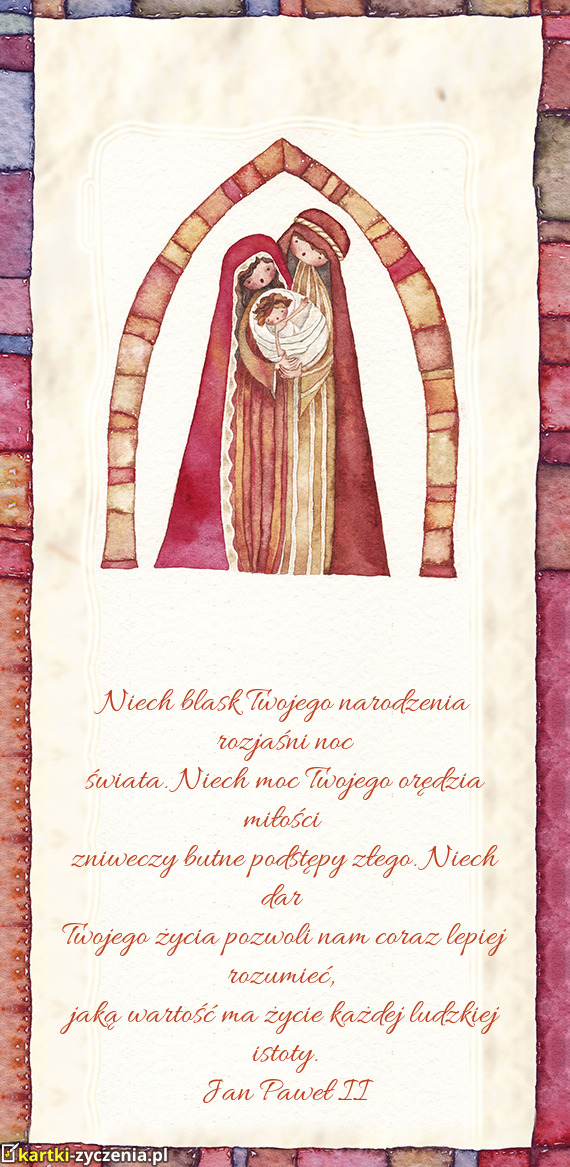 Niech blask Twojego narodzenia
rozjaśni noc
świata. Niech moc Twojego orędzia
miłości
zniweczy butne podstępy złego. Niech
dar
Twojego życia pozwoli nam coraz lepiej
rozumieć,
jaką wartość ma życie każdej ludzkiej
istoty.
Jan Paweł II
kartki-zyczenia.pl